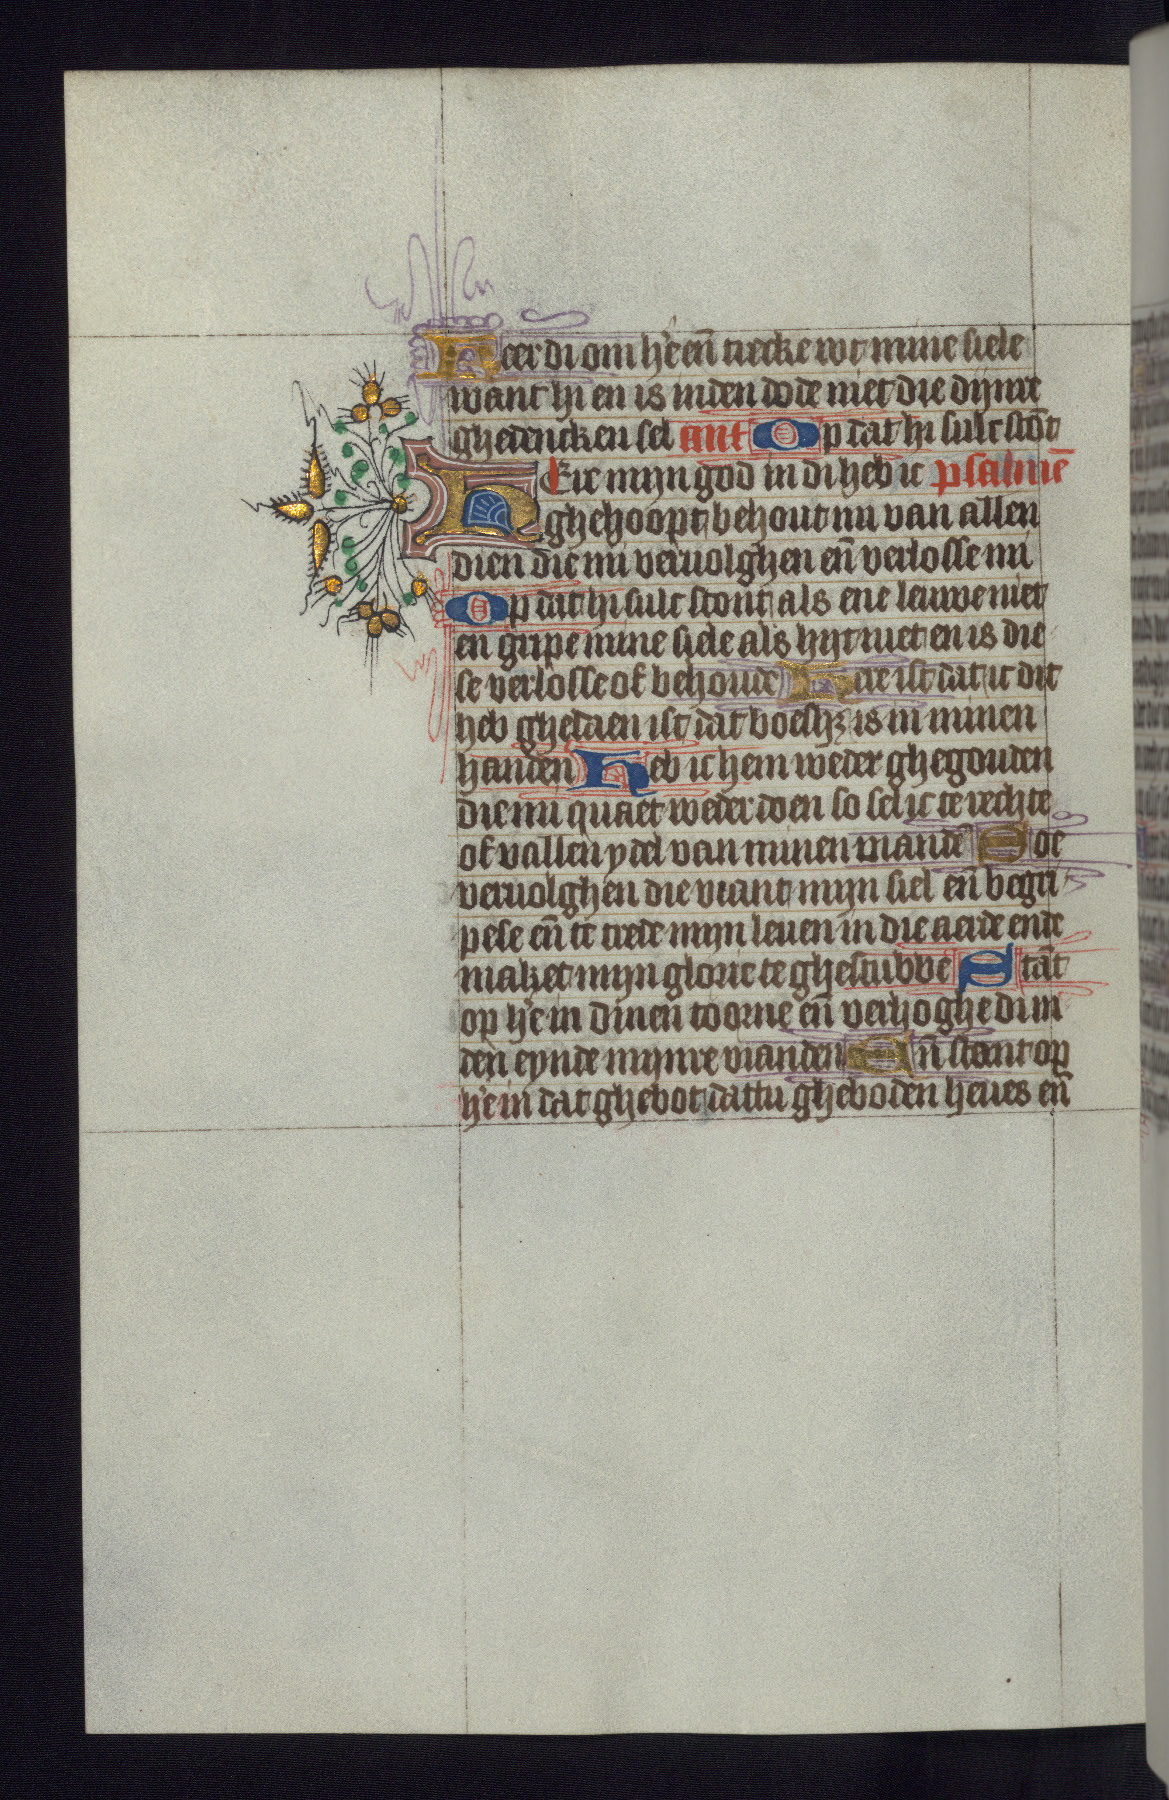 Keer di om h'e en̄ trecke wt mine siele
want hi en is inden dode niet die dijnre
ghedencken sel ant Op dat hi sulc stōt
HEre mijn god in di heb ic psalmē
ghehoopt behout mi van allen
dien die mi veruolghen en̄ verlosse mi
Op dat hi sulc stont als ene leuwe niet
en gripe mine siele als hijt niet en is die
se verlosse of behoude Here ist dat ic dit
heb ghedaen ist dat boesh₃ is in minen
handen Heb ic hem weder ghegouden
die mi quaet weder doen so sel ic te rechte
of vallen ydel van minen viande Soe
veruolghen die viant mijn siel en̄ begri
pese en̄ te trede mijn leuen in die aerde ende
maket mijn glorie te ghestubbe Stāt
op h'e in dinen toorne en̄ verhoghe di in
den eynde mijnre vianden En̄ stant op
h'e in dat ghebot dattu gheboden heues en̄